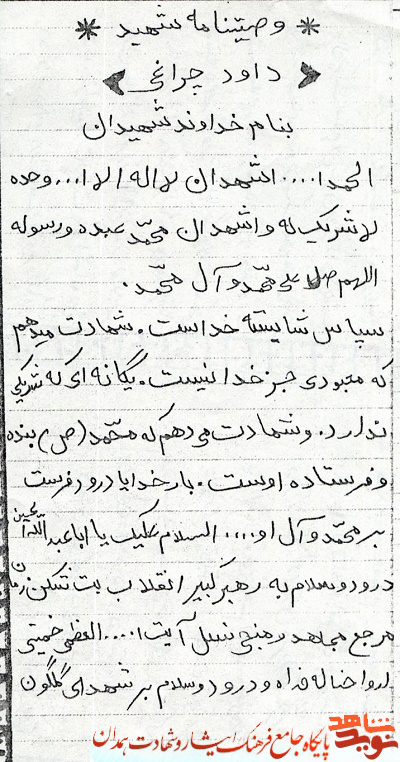 * وصیتنامه شهید *
داود چراغی
بنام خداوند شهیدان
الحمدا.... اشهدان لااله الا ا... وحده
لاشریک له و اشهدان محمّد عبده و رسوله
اللهم صل علی محمّد و آل محمّد.
سپاس شایسته خداست. شهادت میدهم
که معبودی جز خدا نیست. یگانه ای که شریکی
ندارد. و شهادت می دهم که محمّد (ص) بنده
و فرستاده اوست. بار خدایا درود فرست
بر محمّد و آل او.... السلام علیک یا ابا عبدالله الحسین
درود و سلام به رهبر کبیر انقلاب بت شکن زمان
مرجع مجاهد منجی نسل آیت ا.... العظمی خمینی
ارواحنا له فداه و درود و سلام بر شهدای گلگون
نوید شاهد
پایگاه جامع فرهنگ ایثار و شهادت همدان